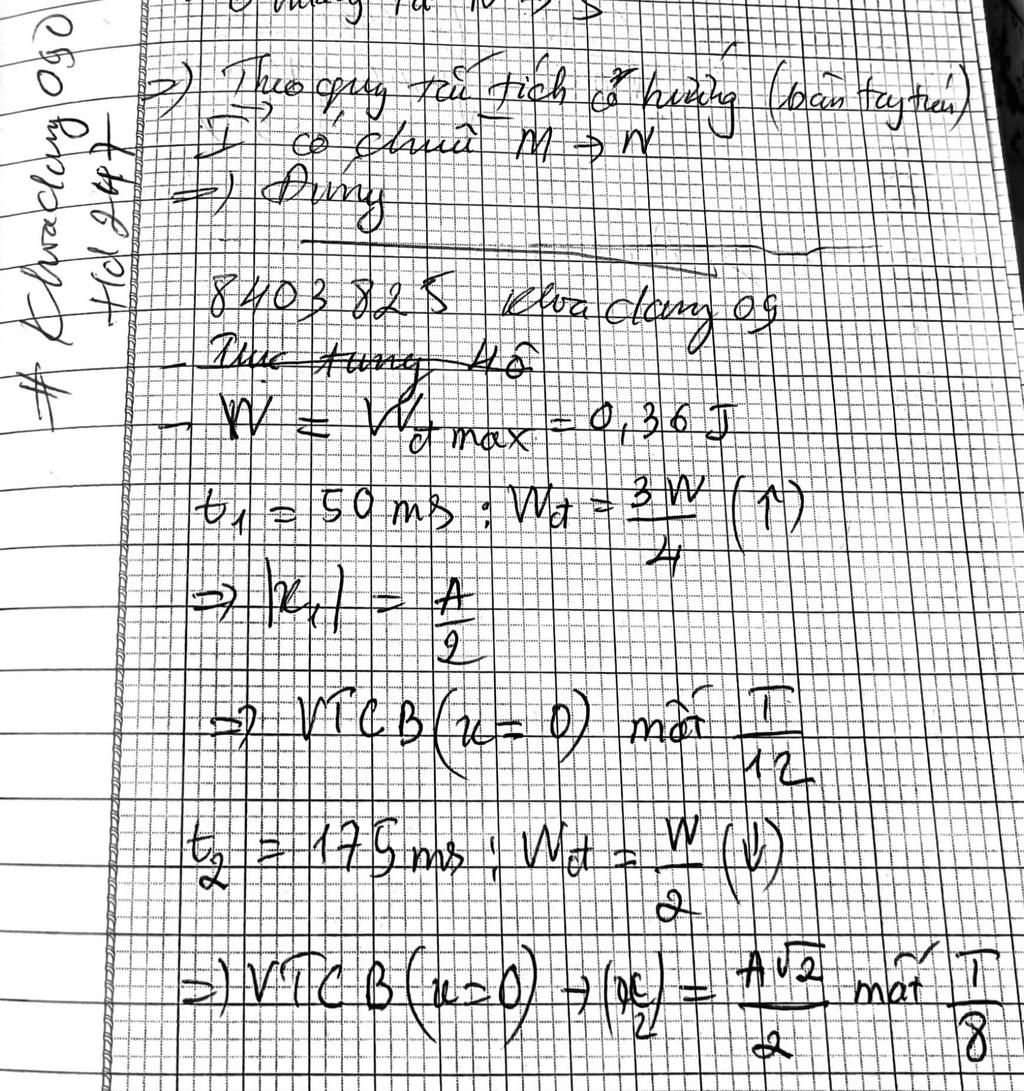 => Theo quy tắc tích có hướng (bàn tay trái)
I có chiều M → N
=> Đúng
8403825 Khoadang09
- Trục tung 4ô
- W = Wđmax = 0,36 J
t₁ = 50 ms : Wđ = 3W/4 (↑)
=> |x₁| = A/2
=> VTCB (x = 0) mất T/12
t₂ = 175 ms : Wđ = W/2 (↓)
=> VTCB (x = 0) → |x₂| = A√2/2 mất T/8
# Khoadang0990
Hd 247